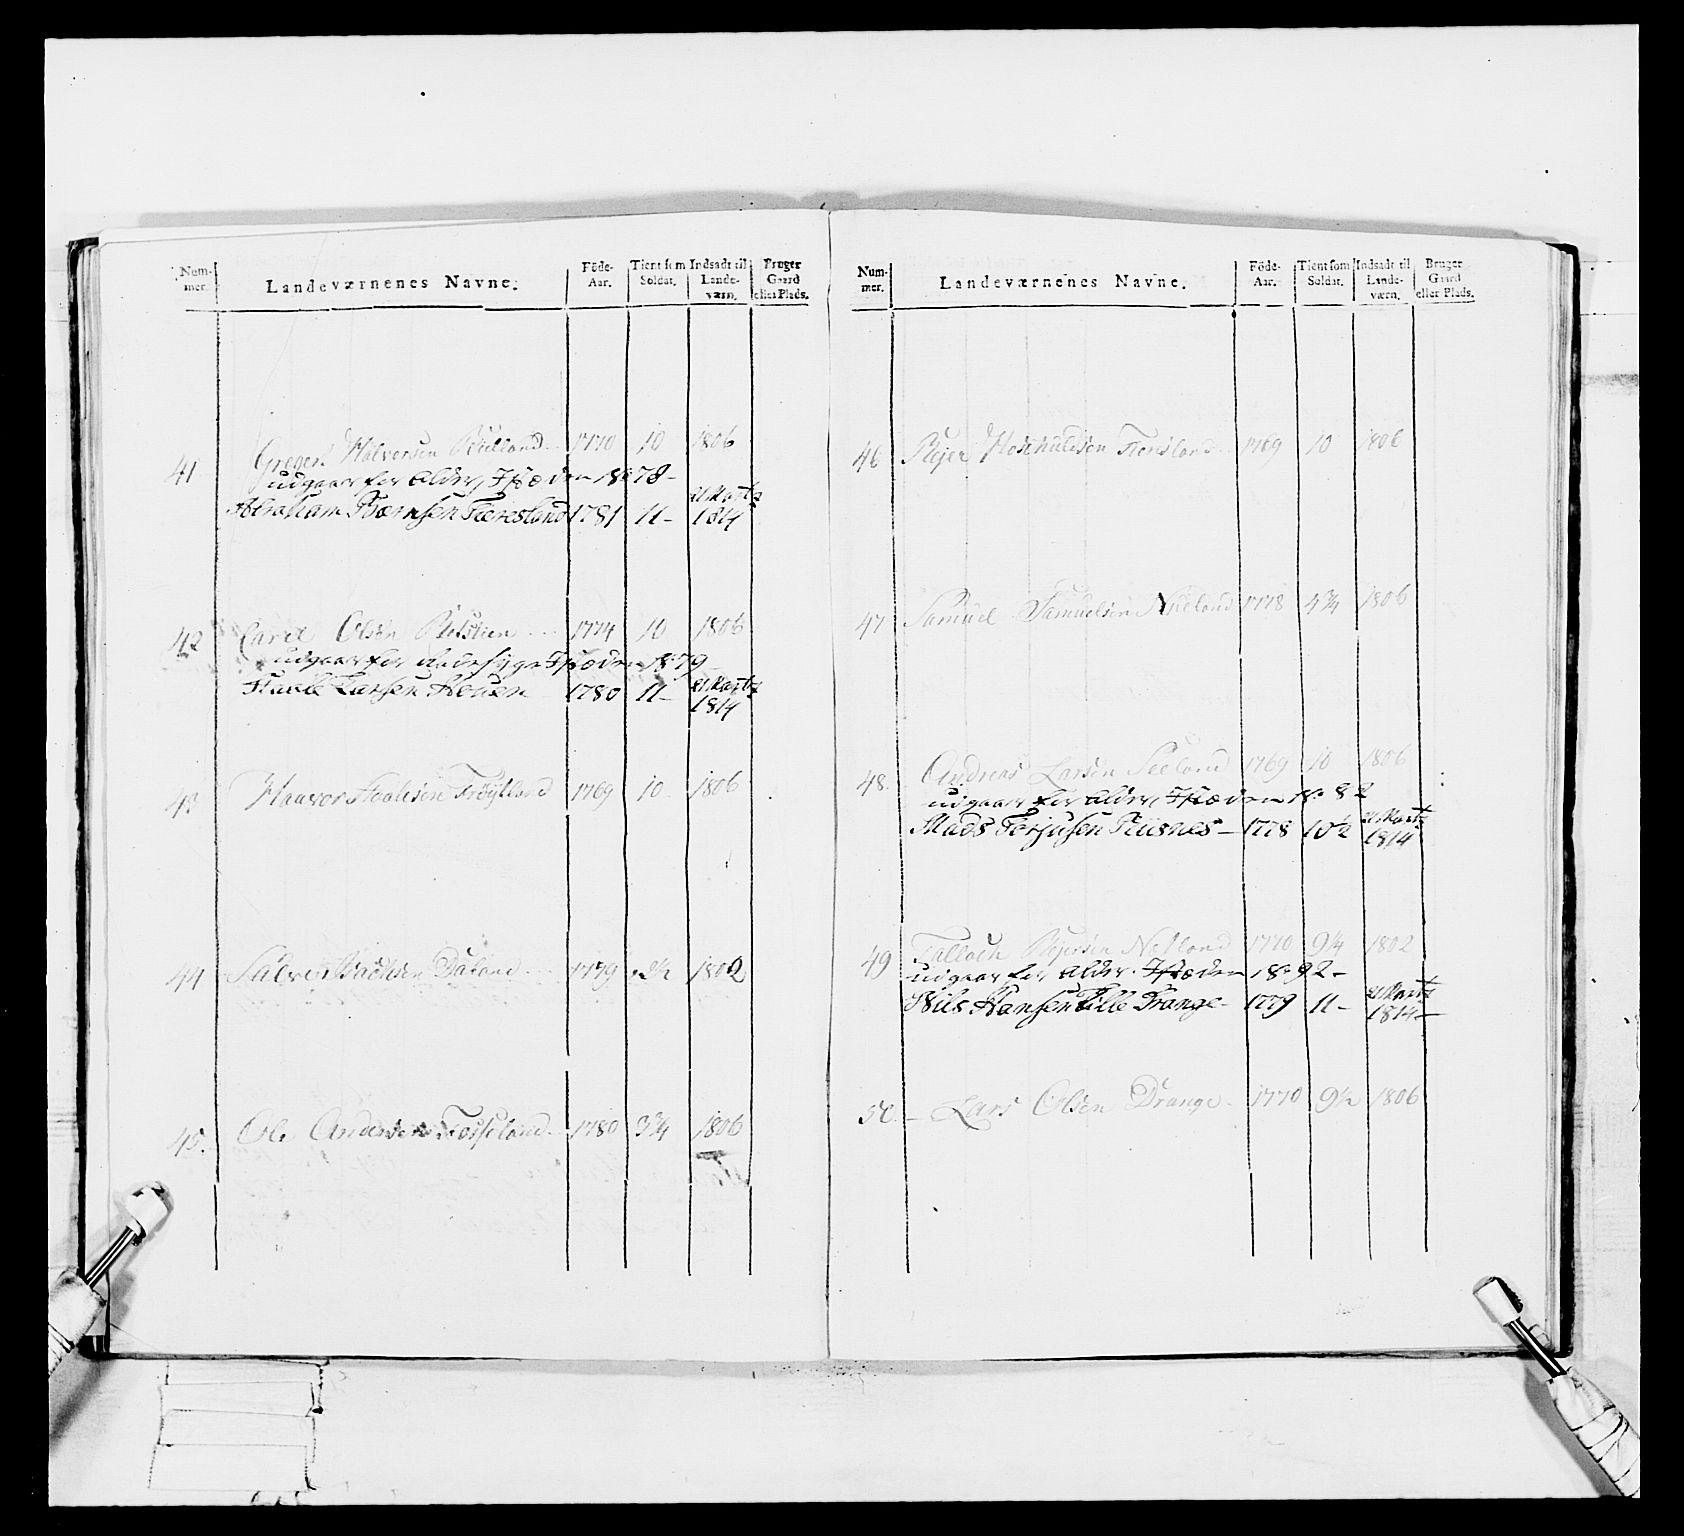 Num-
mer.
Landeværnenes Navne.
Föde-
Aar.
Tient som
Soldat.
Indsadt til
Lande-
værn.
Bruger
Gaard
eller Plads.
41 Gregert Halvorsen 1770 10 1806
udgaar for alder, I stæden No 78-
Abraham Biørnsen Fieresland 1781 11- 21 Martz
1814
42 Carel Olsen 1774 10 1806
udgaar for Radesyge I stæden No 79-
Larsen Houen 1780 11- 21 Martz
1814
43 Haavor Frøytland 1769 10 1806
44 Salve Daland 1779 1802
45. Ole Andersen Fosseland 1780 3¾ 1806
Num-
mer.
Landeværnenes Navne.
Föde-
Aar.
Tient som
Soldat.
Indsadt til
Lande-
værn.
Bruger
Gaard
eller Plads.
46 Rejer Fieresland 1769 10 1806
47 Samuel Samuelsen 1778 4¾ 1806
48. Andreas Larsen Seeland 1769 10 1806
udgaar for alder, I stæden No 82
Mads Terjusen 1778 10½ 21 Martz
1814
49 Tallach Rejersen 1770 9¼ 1802
udgaar for alder. I stæden No 92-
Nils Hansen Lille Drange- 1779 11- 21 Martz
1814-
50- Lars Olsen Drange- 1770 9½ 1806